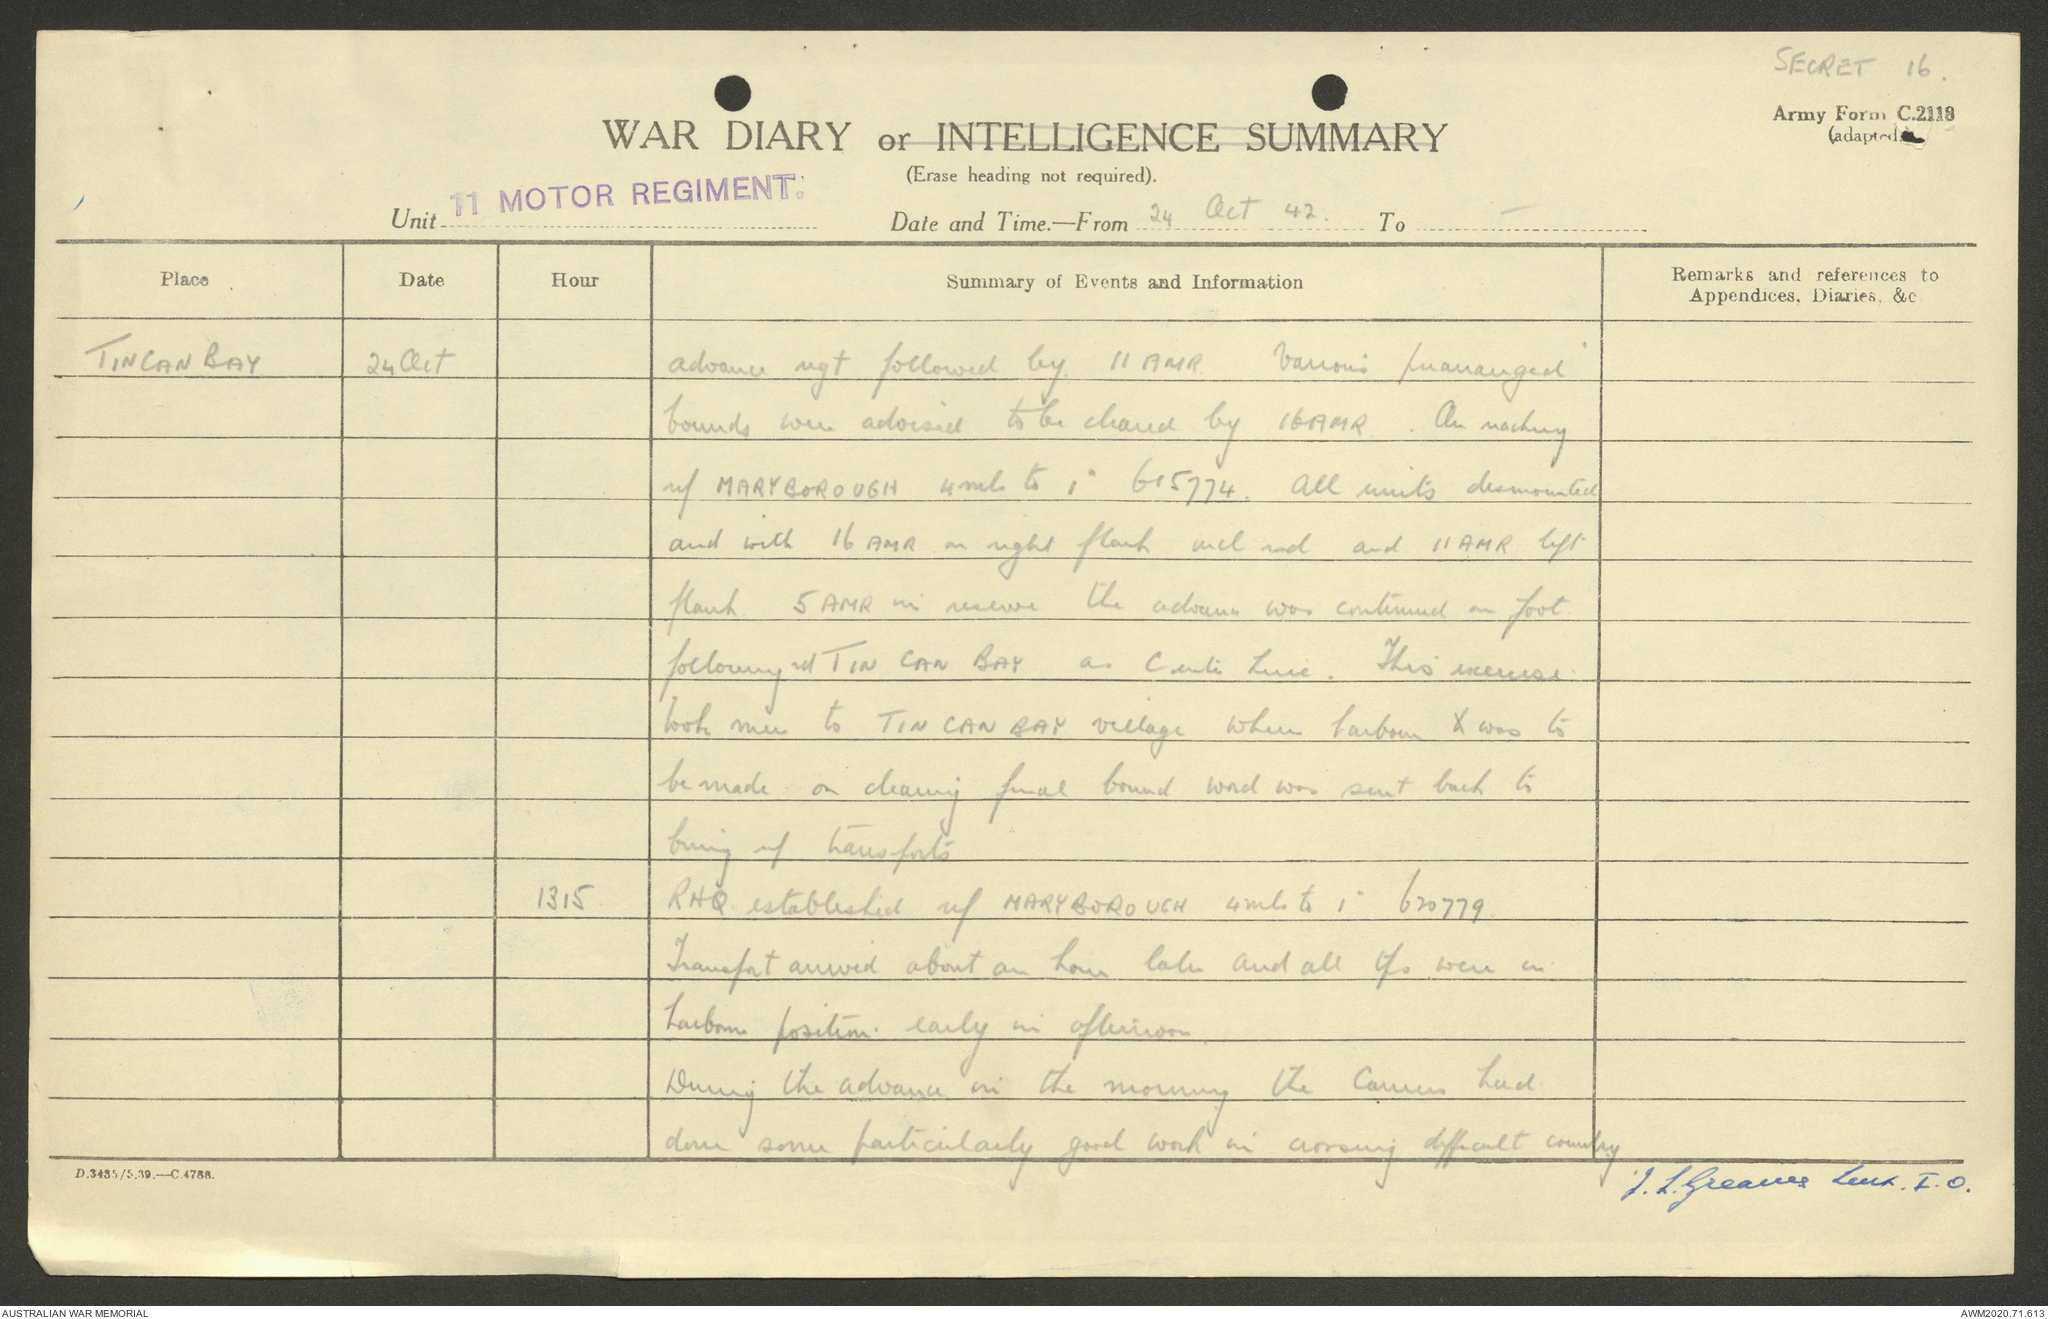 SECRET 16.
Army Form C.2118
(adapted)
WAR DIARY or INTELLIGENCE SUMMARY
(Erase heading not required).
Unit 11 MOTOR REGIMENT. Date and Time.—From 24 Oct 42. To —
Place Date Hour Summary of Events and Information Remarks and references to
Appendices, Diaries, &c
TIN CAN BAY 24 Oct advance rgt followed by 11 AMR. Various prearranged
bounds were advised to be cleared by 16 AMR. On reaching
rf MARYBOROUGH 4 mls to 1" 615774. All units dismounted
and with 16 AMR on right flank incl rd and 11 AMR left
flank. 5 AMR in reserve the advance was continued on foot
following rd TIN CAN BAY as Centre Line. This exercise
took men to TIN CAN BAY village where harbour X was to
be made on clearing final bound word was sent back to
bring up transports
1315. RHQ established rf MARYBOROUGH 4 mls to 1" 620779.
Transport arrived about an hour later and all were in
harbour position early in afternoon.
During the advance in the morning the Carriers had
done some particularly good work in crossing difficult country
D.3435/5.39.—C.4788.
J. L. Greaves Lieut. I.O.
AUSTRALIAN WAR MEMORIAL
AWM2020.71.613